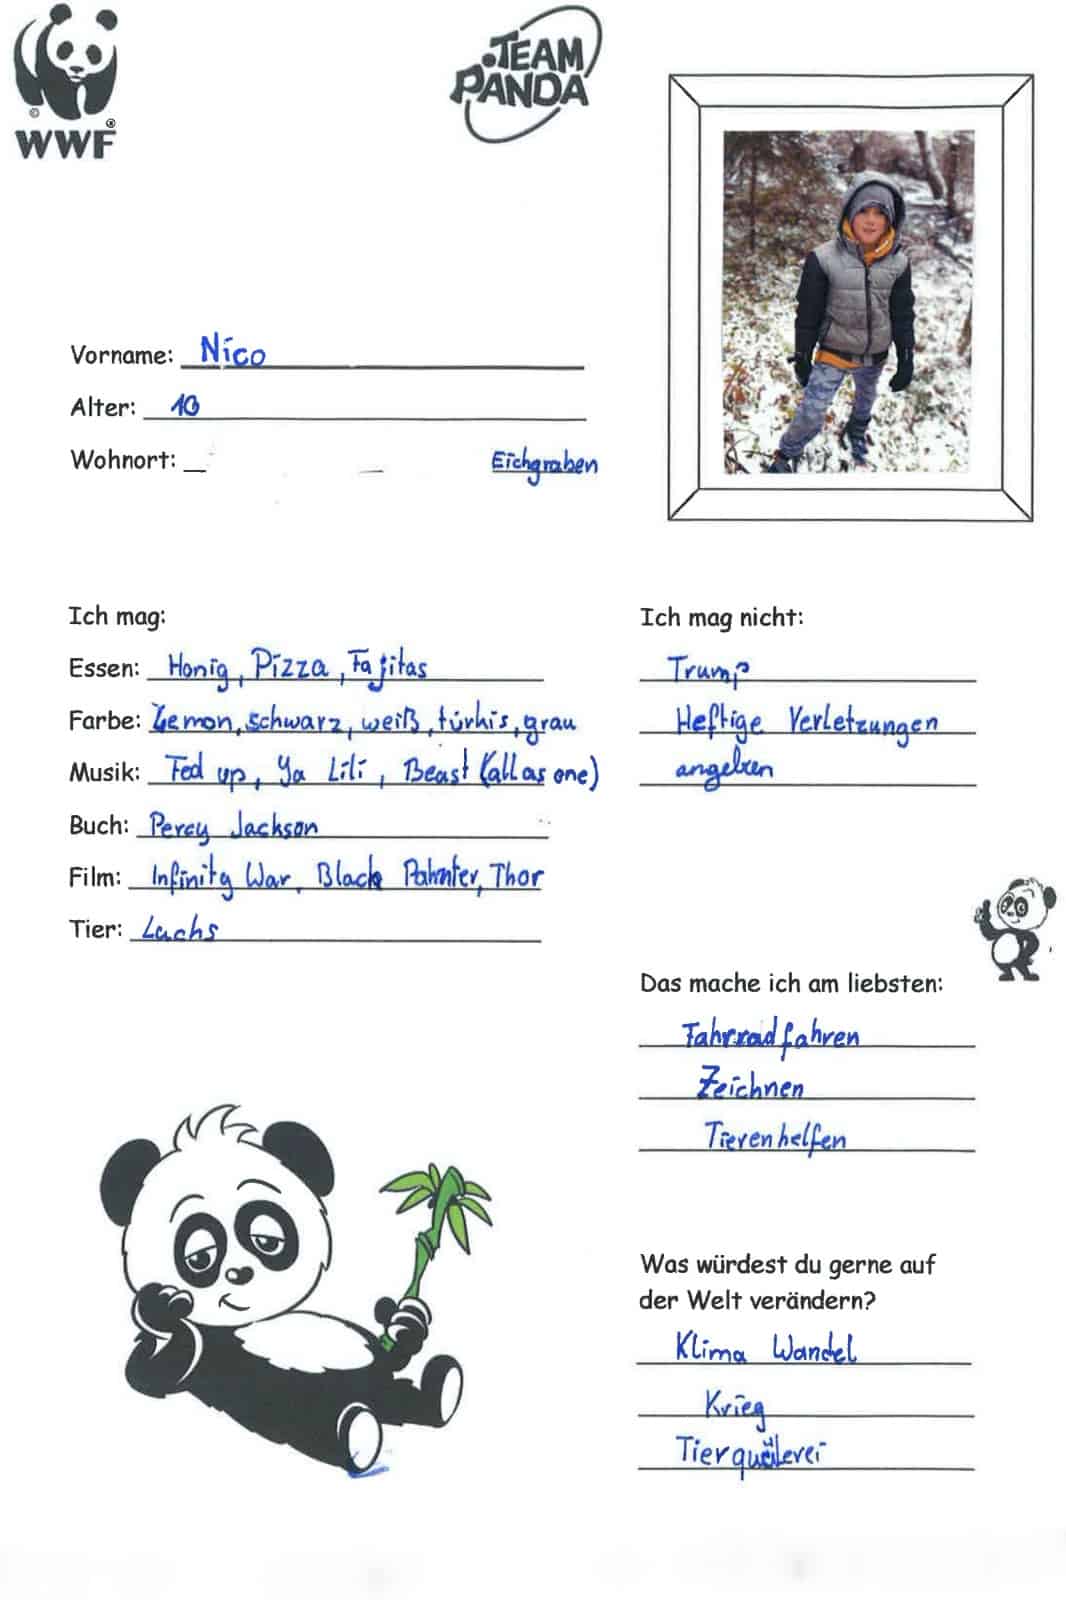 WWF
TEAM
PANDA
Vorname: Nico
Alter: 10
Wohnort: Eichgraben
Ich mag:
Essen: Honig, Pizza, Fajitas
Farbe: Lemon, schwarz, weiß, türkis, grau
Musik: Fed up, Ya Lili, Beast (all as one)
Buch: Percy Jackson
Film: Infinity War, Black Pahnter, Thor
Tier: Luchs
Ich mag nicht:
Trump
Heftige Verletzungen
angeben
Das mache ich am liebsten:
Fahrradfahren
Zeichnen
Tieren helfen
Was würdest du gerne auf
der Welt verändern?
Klima Wandel
Krieg
Tierquälerei